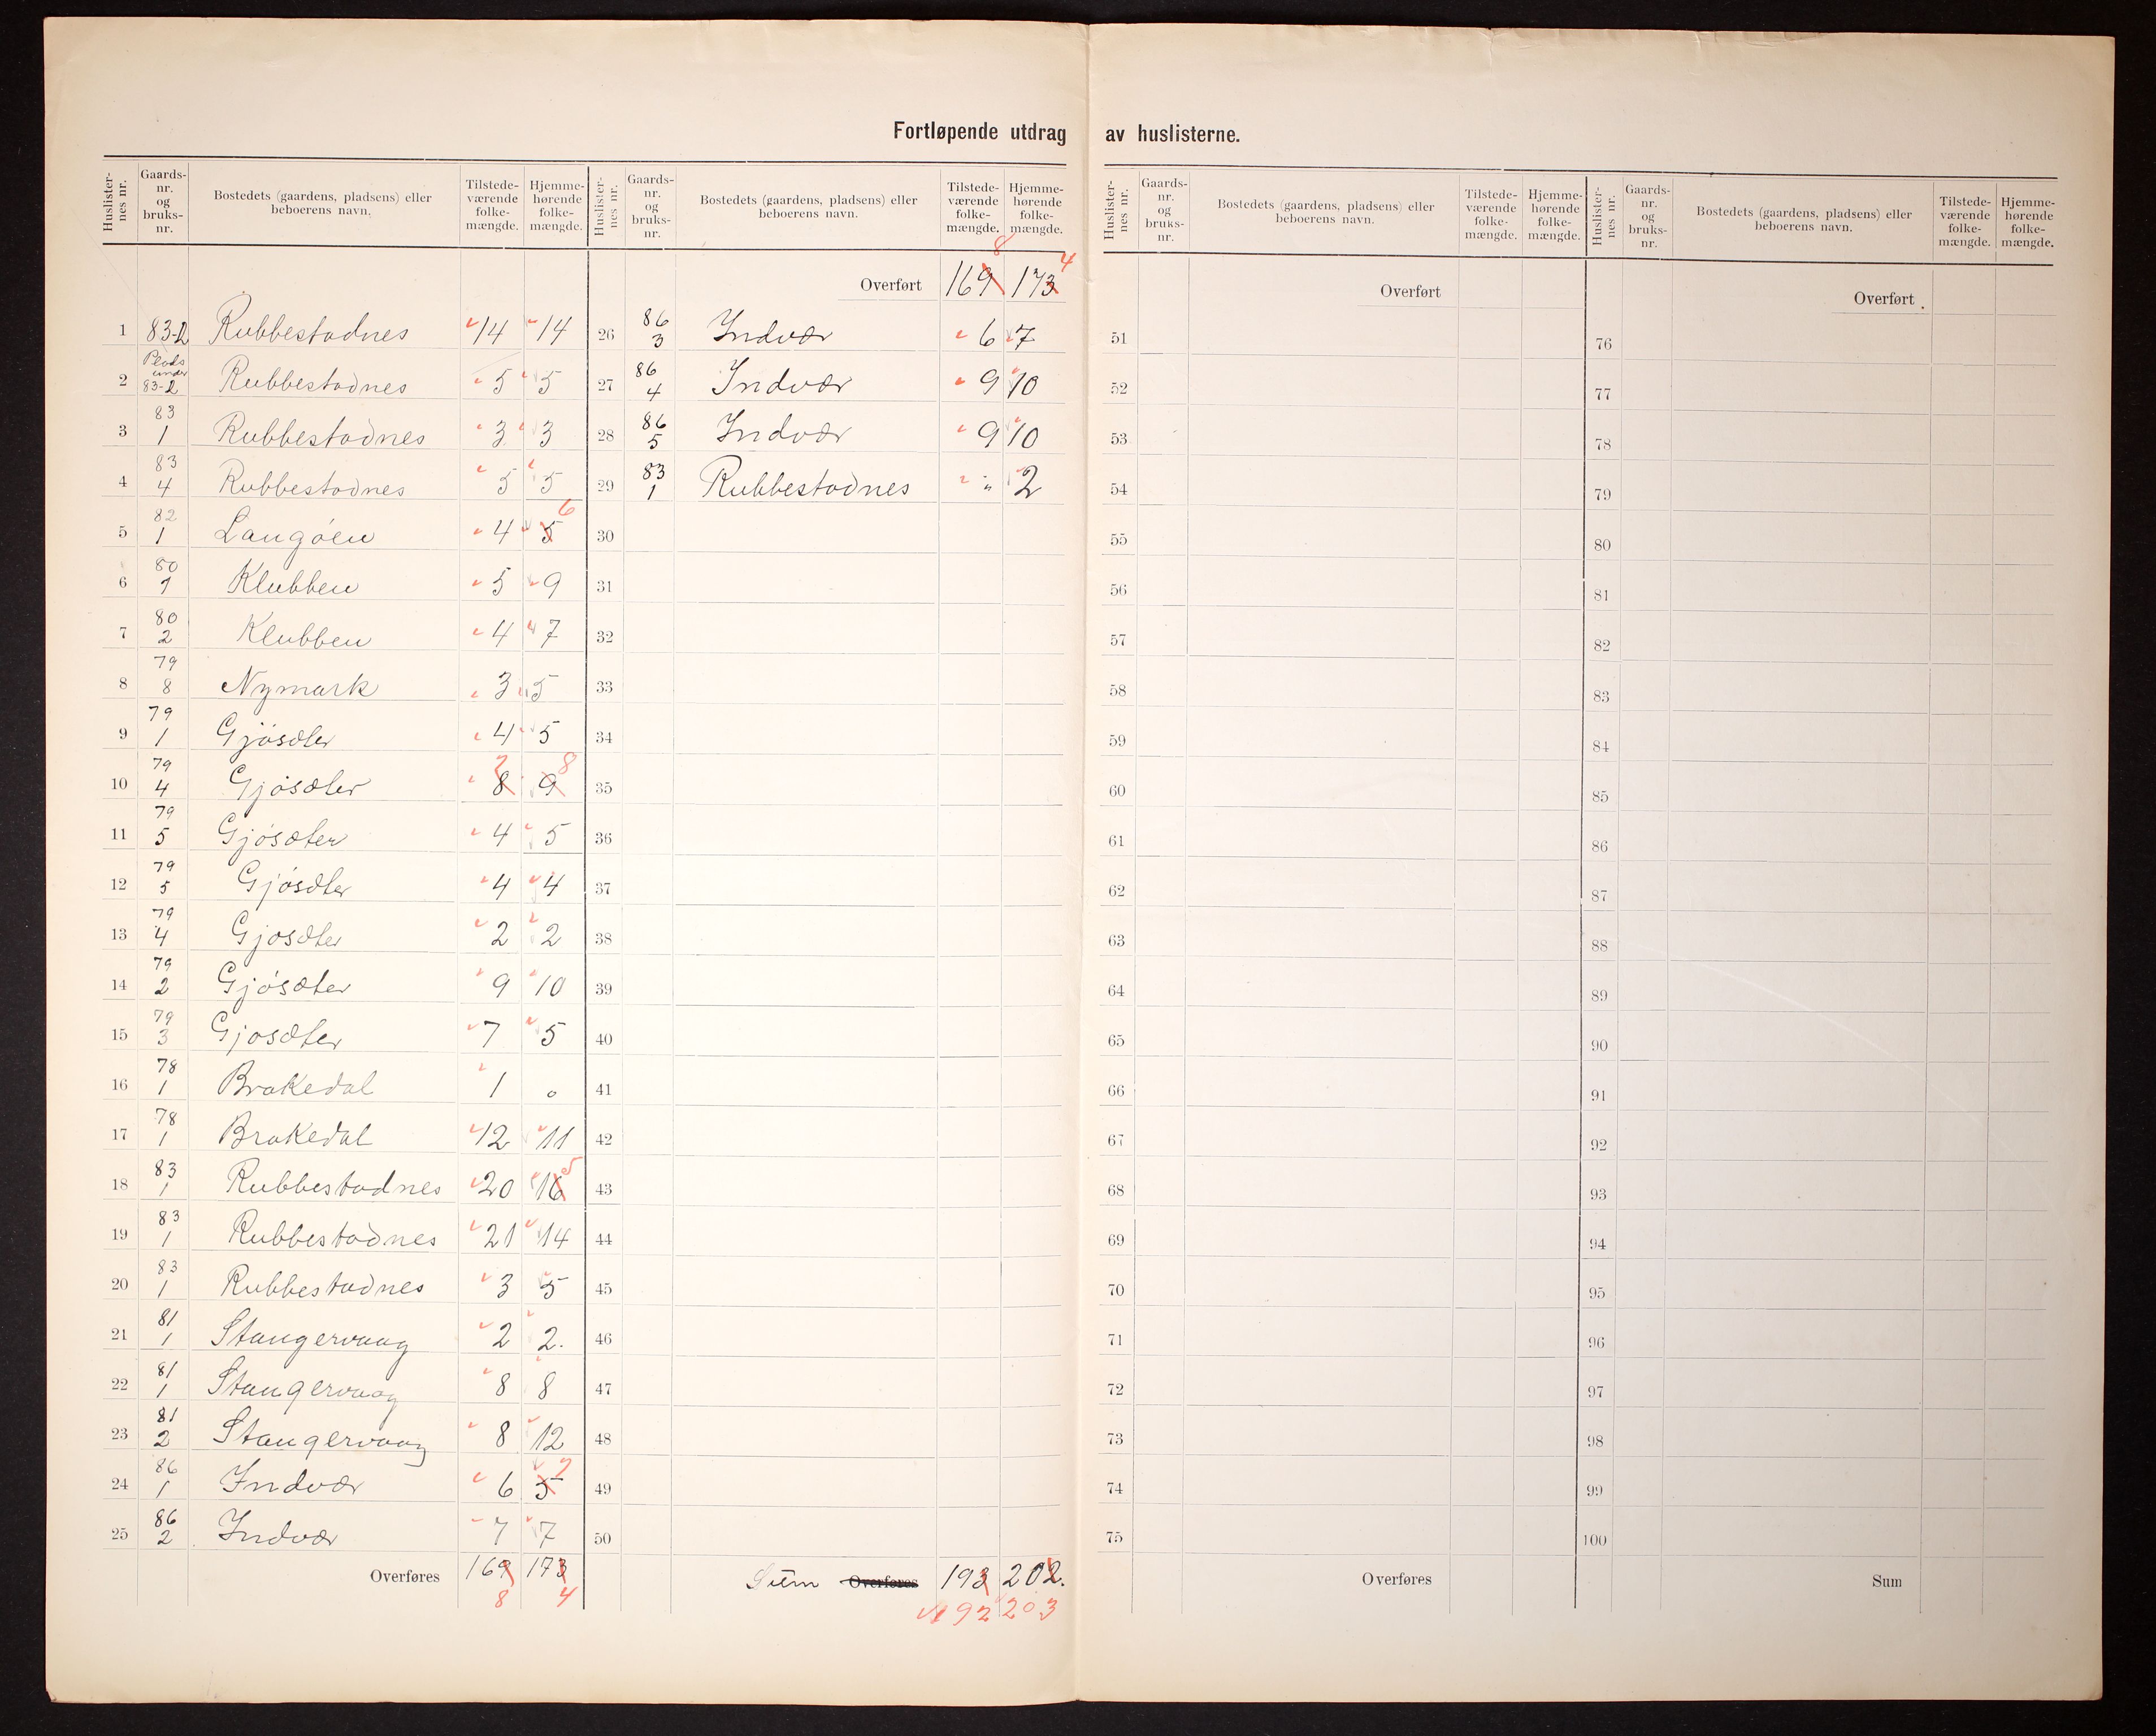 Fortløpende utdrag av huslisterne.
Huslisternes nr. | Gaards-nr. og bruks-nr. | Bostedets (gaardens, pladsens) eller beboerens navn. | Tilstede-værende folke-mængde. | Hjemme-hørende folke-mængde.
1 | 83-2 | Rubbestadnes | 14 | 14
2 | Plads under 83-2 | Rubbestadnes | 5 | 5
3 | 83 1 | Rubbestadnes | 3 | 3
4 | 83 4 | Rubbestadnes | 5 | 5
5 | 82 1 | Langöen | 4 | 5 6
6 | 80 1 | Klubben | 5 | 9
7 | 80 2 | Klubben | 4 | 7
8 | 79 8 | Nymark | 3 | 5
9 | 79 1 | Gjösæter | 4 | 5
10 | 79 4 | Gjösæter | 8 7 | 9 8
11 | 79 5 | Gjösæter | 4 | 5
12 | 79 5 | Gjösæter | 4 | 4
13 | 79 4 | Gjosæter | 2 | 2
14 | 79 2 | Gjösæter | 9 | 10
15 | 79 3 | Gjosæter | 7 | 5
16 | 78 1 | Brakedal | 1 | 0
17 | 78 1 | Brakedal | 12 | 11
18 | 83 1 | Rubbestadnes | 20 | 16 5
19 | 83 1 | Rubbestadnes | 21 | 14
20 | 83 1 | Rubbestadnes | 3 | 5
21 | 81 1 | Stangervaag | 2 | 2.
22 | 81 1 | Stangervaag | 8 | 8
23 | 81 2 | Stangervaag | 8 | 12
24 | 86 1 | Indvær | 6 | 5 7
25 | 86 2 | Indvær | 7 | 7
Overføres | 169 8 | 173 4
Huslisternes nr. | Gaards-nr. og bruks-nr. | Bostedets (gaardens, pladsens) eller beboerens navn. | Tilstede-værende folke-mængde. | Hjemme-hørende folke-mængde.
Overført | 169 8 | 173 4
26 | 86 3 | Indvær | 6 | 7
27 | 86 4 | Indvær | 9 | 10
28 | 86 5 | Indvær | 9 | 10
29 | 83 1 | Rubbestadnes | " | 2
30
31
32
33
34
35
36
37
38
39
40
41
42
43
44
45
46
47
48
49
50
Sum Overføres | 193 | 202.
192 | 203
Huslisternes nr. | Gaards-nr. og bruks-nr. | Bostedets (gaardens, pladsens) eller beboerens navn. | Tilstede-værende folke-mængde. | Hjemme-hørende folke-mængde.
Overført
51
52
53
54
55
56
57
58
59
60
61
62
63
64
65
66
67
68
69
70
71
72
73
74
75
Overføres
Huslisternes nr. | Gaards-nr. og bruks-nr. | Bostedets (gaardens, pladsens) eller beboerens navn. | Tilstede-værende folke-mængde. | Hjemme-hørende folke-mængde.
Overført
76
77
78
79
80
81
82
83
84
85
86
87
88
89
90
91
92
93
94
95
96
97
98
99
100
Sum